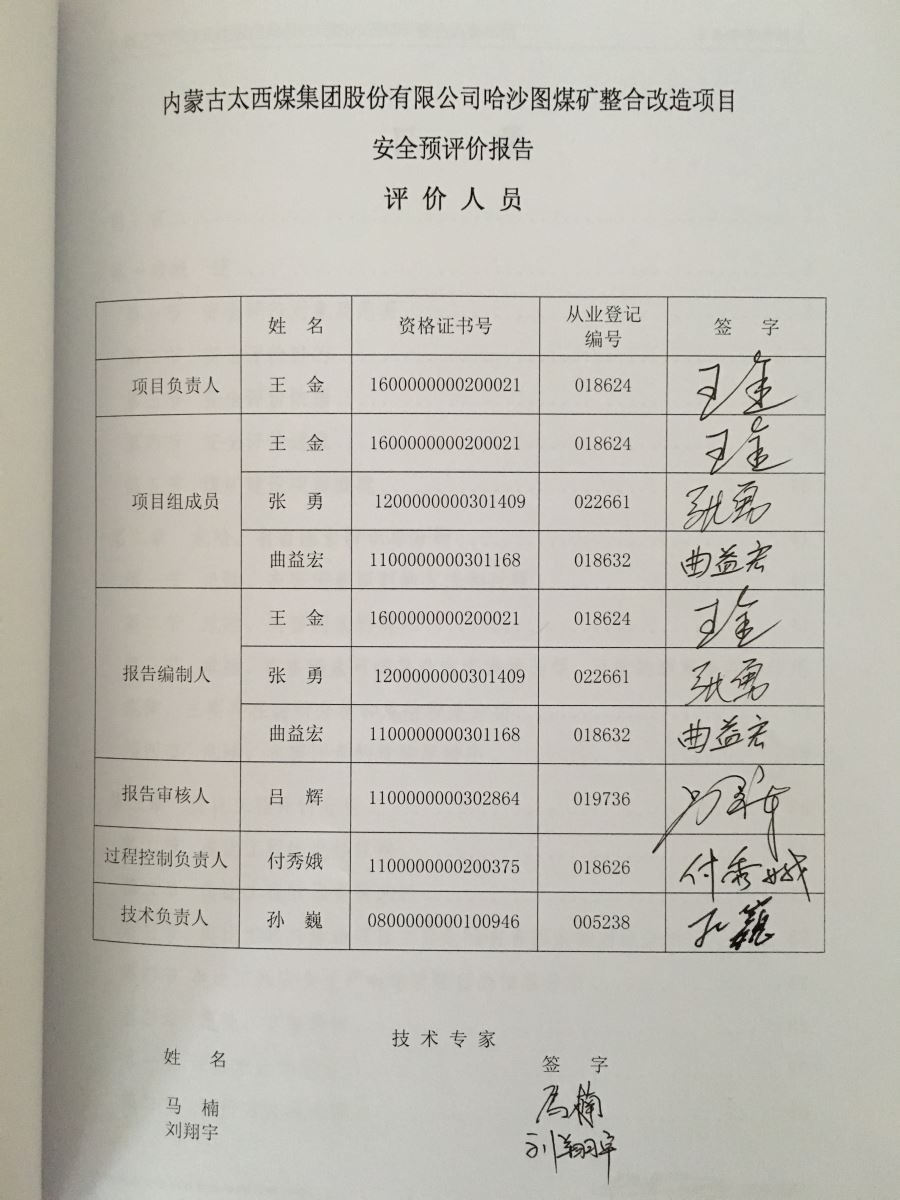 内蒙古太西煤集团股份有限公司哈沙图煤矿整合改造项目
安全预评价报告
评价人员
姓 名 资格证书号 从业登记编号 签 字
项目负责人 王 金 1600000000200021 018624 王金
项目组成员 王 金 1600000000200021 018624 王金
张 勇 1200000000301409 022661 张勇
曲益宏 1100000000301168 018632 曲益宏
报告编制人 王 金 1600000000200021 018624 王金
张 勇 1200000000301409 022661 张勇
曲益宏 1100000000301168 018632 曲益宏
报告审核人 吕 辉 1100000000302864 019736
过程控制负责人 付秀娥 1100000000200375 018626 付秀娥
技术负责人 孙 巍 0800000000100946 005238 孙巍
技术专家
姓 名 签 字
马 楠 马楠
刘翔宇 刘翔宇